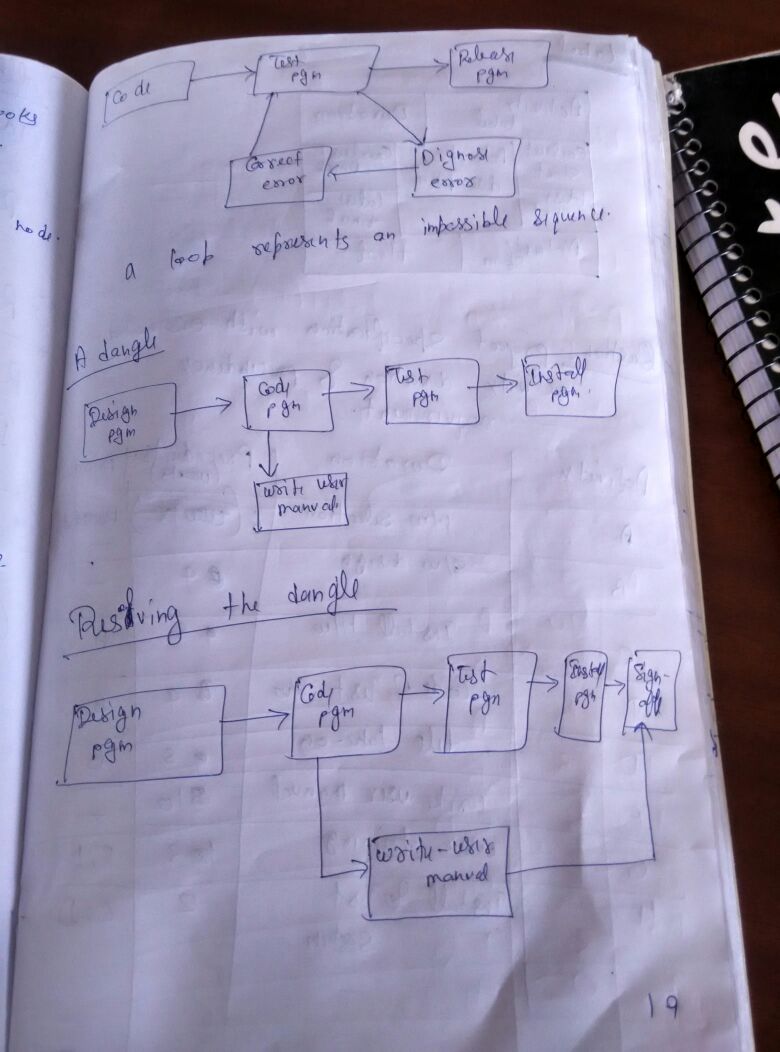 ooks
node.
Code
Test
pgm
Release
pgm
Correct
error
Dignose
error
a loop represents an impossible sequence.
A dangle
Design
pgm
Code
pgm
Test
pgm
Install
pgm.
write user
manual
Resolving the dangle
Design
pgm
Code
pgm
Test
pgm
Install
pgm
Sign-
off
write-user
manual
19